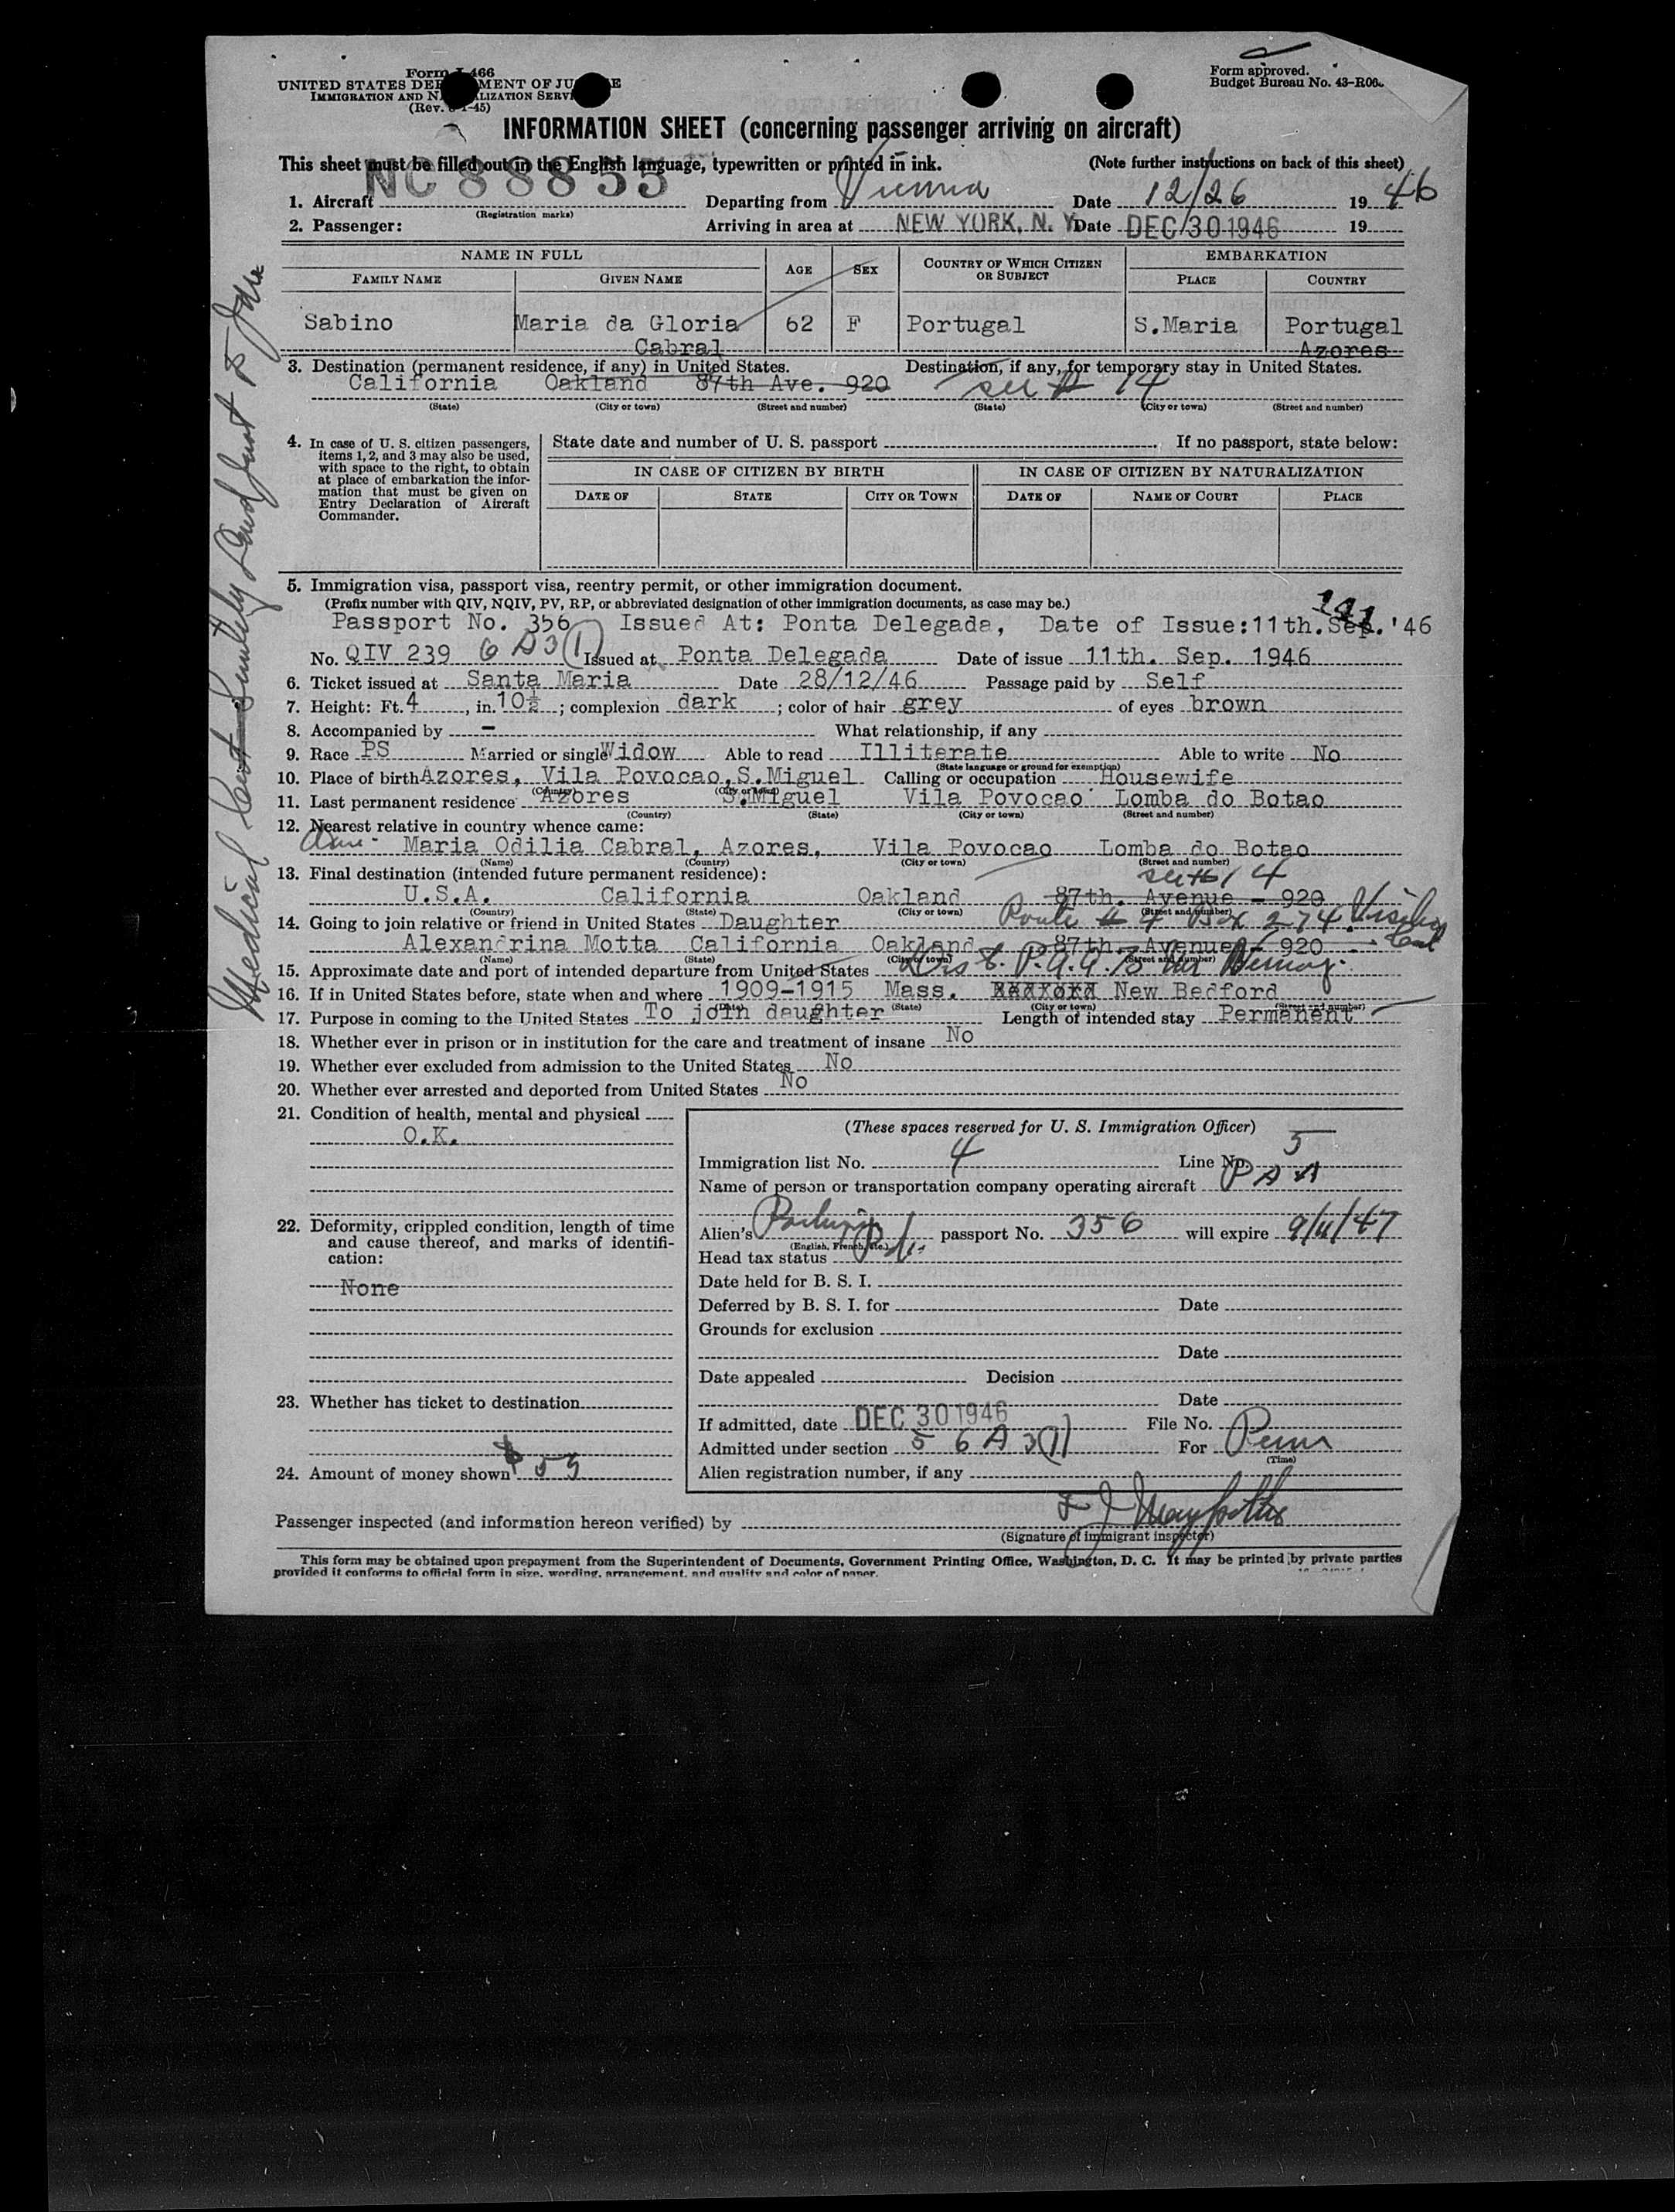 Form approved.
Budget Bureau No. 43-R06
UNITED STATES
IMMIGRATION AND
(Rev.
INFORMATION SHEET (concerning passenger arriving on aircraft)
This sheet must be filled out in the English language, typewritten or printed in ink. (Note further instructions on back of this sheet)
NC 88855
1. Aircraft Departing from Vienna Date 12/26 1946
(Registration marks)
2. Passenger: Arriving in area at NEW YORK, N. Y. Date DEC 30 1946 19
NAME IN FULL AGE SEX COUNTRY OF WHICH CITIZEN OR SUBJECT EMBARKATION
FAMILY NAME GIVEN NAME PLACE COUNTRY
Sabino Maria da Gloria 62 F Portugal S.Maria Portugal
Cabral Azores
3. Destination (permanent residence, if any) in United States. Destination, if any, for temporary stay in United States.
California Oakland 87th Ave. 920 see # 14
(State) (City or town) (Street and number) (State) (City or town) (Street and number)
4. In case of U. S. citizen passengers, items 1, 2, and 3 may also be used, with space to the right, to obtain at place of embarkation the information that must be given on Entry Declaration of Aircraft Commander.
State date and number of U. S. passport If no passport, state below:
IN CASE OF CITIZEN BY BIRTH IN CASE OF CITIZEN BY NATURALIZATION
DATE OF STATE CITY OR TOWN DATE OF NAME OF COURT PLACE
5. Immigration visa, passport visa, reentry permit, or other immigration document.
(Prefix number with QIV, NQIV, PV, RP, or abbreviated designation of other immigration documents, as case may be.)
Passport No. 356 Issued At: Ponta Delegada, Date of Issue:11th.Sep.'46
No. QIV 239 6 A3(1) Issued at Ponta Delegada Date of issue 11th. Sep. 1946
6. Ticket issued at Santa Maria Date 28/12/46 Passage paid by Self
7. Height: Ft. 4, in. 10½; complexion dark; color of hair grey of eyes brown
8. Accompanied by - What relationship, if any
9. Race PS Married or single Widow Able to read Illiterate Able to write No
(State language or ground for exemption)
10. Place of birth Azores, Vila Povocao,S.Miguel Calling or occupation Housewife
(Country) (City or town)
11. Last permanent residence Azores S.Miguel Vila Povocao Lomba do Botao
(Country) (State) (City or town) (Street and number)
12. Nearest relative in country whence came:
Maria Odilia Cabral, Azores, Vila Povocao Lomba do Botao
(Name) (Country) (City or town) (Street and number)
13. Final destination (intended future permanent residence): see # 14
U.S.A. California Oakland 87th. Avenue - 920
(Country) (State) (City or town) (Street and number)
14. Going to join relative or friend in United States Daughter Route # 4 Box 274
Alexandrina Motta California Oakland 87th. Avenue - 920
(Name) (State) (City or town) (Street and number)
15. Approximate date and port of intended departure from United States
16. If in United States before, state when and where 1909-1915 Mass. New Bedford
(Date) (State) (City or town) (Street and number)
17. Purpose in coming to the United States To join daughter Length of intended stay Permanent
18. Whether ever in prison or in institution for the care and treatment of insane No
19. Whether ever excluded from admission to the United States No
20. Whether ever arrested and deported from United States No
21. Condition of health, mental and physical
O.K.
22. Deformity, crippled condition, length of time and cause thereof, and marks of identification:
None
23. Whether has ticket to destination
24. Amount of money shown $ 55
(These spaces reserved for U. S. Immigration Officer)
Immigration list No. 4 Line No. 5
Name of person or transportation company operating aircraft PAA
Alien's passport No. 356 will expire 9/11/47
(English, French, etc.)
Head tax status Pd
Date held for B. S. I.
Deferred by B. S. I. for Date
Grounds for exclusion
Date
Date appealed Decision
Date
If admitted, date DEC 30 1946 File No.
Admitted under section 5 6 A 3(1) For Perm
(Time)
Alien registration number, if any
Passenger inspected (and information hereon verified) by
(Signature of immigrant inspector)
This form may be obtained upon prepayment from the Superintendent of Documents, Government Printing Office, Washington, D. C. It may be printed by private parties
provided it conforms to official form in size, wording, arrangement, and quality and color of paper.